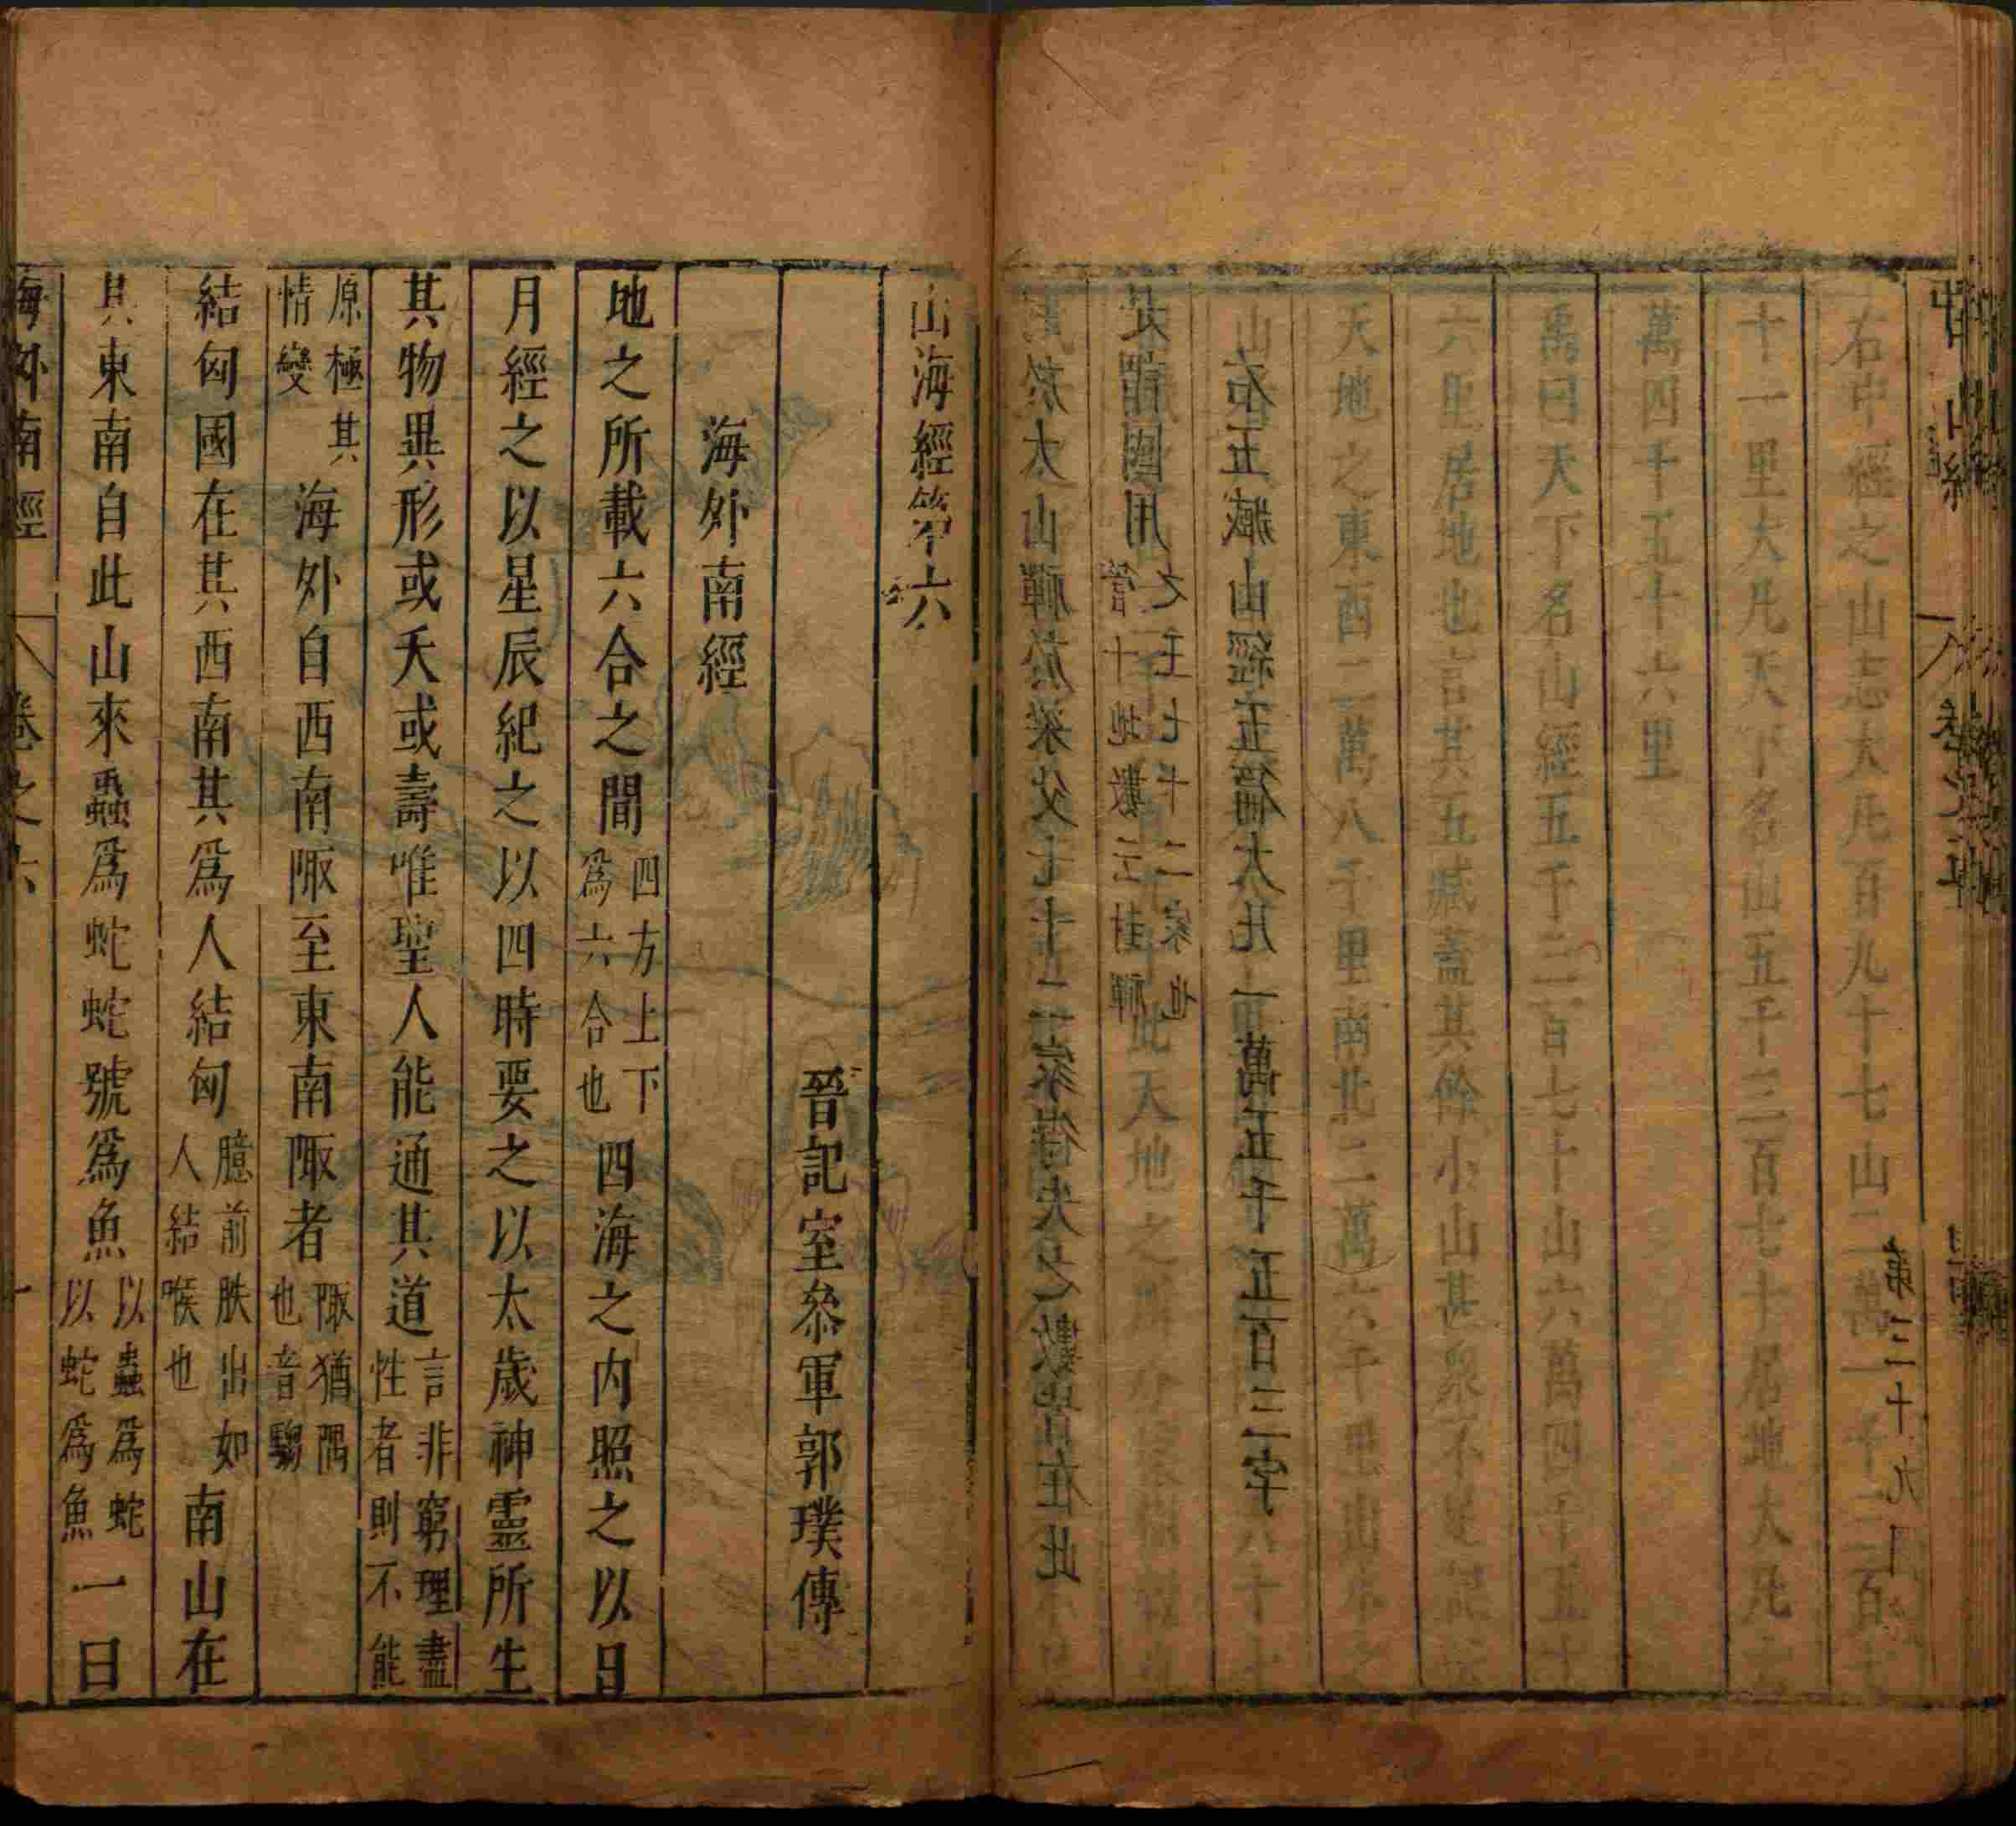 右中經之山志大凡百九十七山二萬一千三百七
十一里大凡天下名山五千三百七十居地大凡六
萬四千五十六里
禹曰天下名山經五千三百七十山六萬四千五十
六里居地也言其五臧蓋其餘小山甚衆不足記云
天地之東西二萬八千里南北二萬六千里出水之
右五臧山經五篇大凡一萬五千五百三字
是謂國用
於太山禪於梁父七十二家得失之數皆在此
第三十九
山海經第六
晉記室叅軍郭璞傳
海外南經
地之所載六合之間四方上下爲六合也四海之内照之以日
月經之以星辰紀之以四時要之以太歲神靈所生
其物異形或夭或壽唯聖人能通其道言非窮理盡性者則不能
原極其情變海外自西南陬至東南陬者陬猶隅也音騶
結匈國在其西南其爲人結匈臆前胅出如人結喉也南山在
其東南自此山來蟲爲蛇蛇號爲魚以蟲爲蛇以蛇爲魚一曰
海外南經 卷之六 一